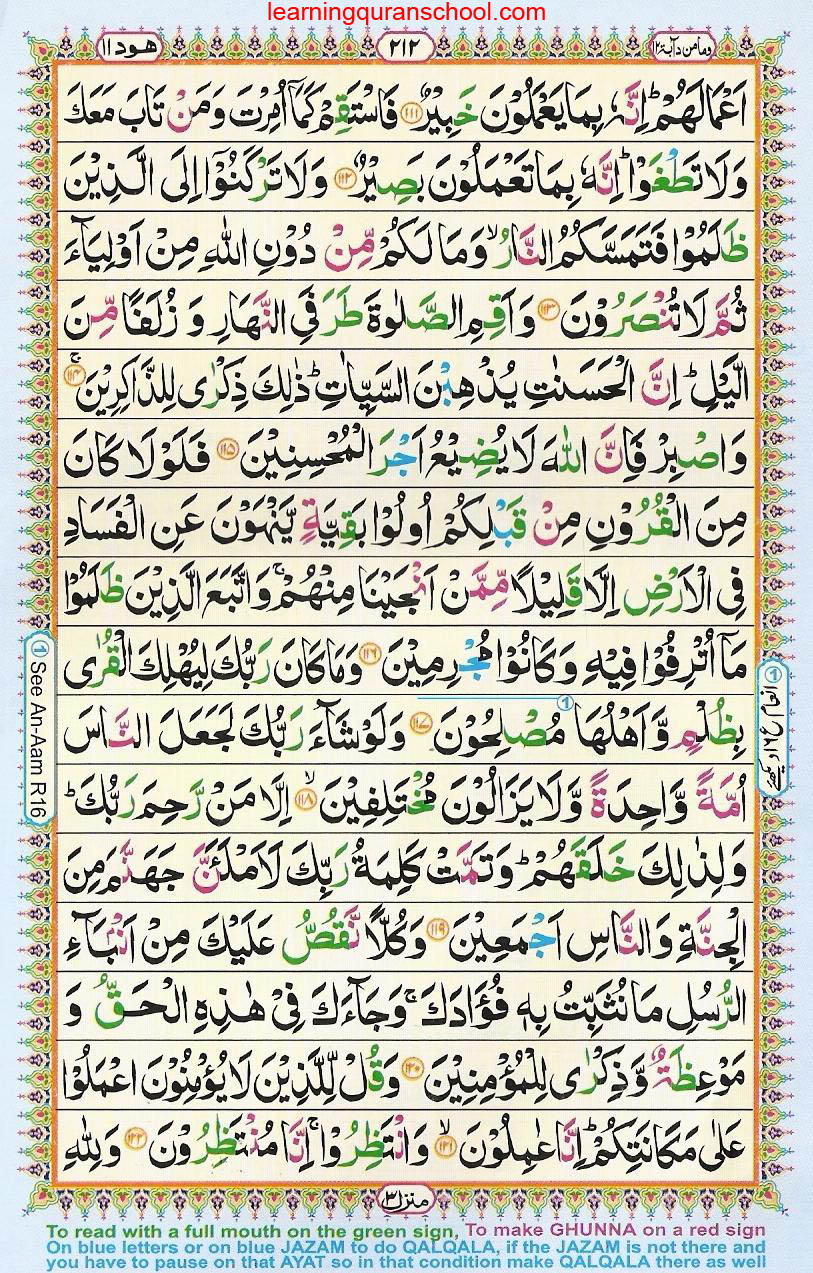 learningquranschool.com
ومامن دآبۃ ۱۲
۲۱۲
هود ۱۱
اَعْمَالَهُمْ ؕ اِنَّهٗ بِمَا يَعْمَلُوْنَ خَبِيْرٌ ﴿۱۱۱﴾ فَاسْتَقِمْ كَمَاۤ اُمِرْتَ وَمَنْ تَابَ مَعَكَ
وَلَا تَطْغَوْا ؕ اِنَّهٗ بِمَا تَعْمَلُوْنَ بَصِيْرٌ ﴿۱۱۲﴾ وَلَا تَرْكَنُوْۤا اِلَى الَّذِيْنَ
ظَلَمُوْا فَتَمَسَّكُمُ النَّارُ ۙ وَمَا لَكُمْ مِّنْ دُوْنِ اللّٰهِ مِنْ اَوْلِيَآءَ
ثُمَّ لَا تُنْصَرُوْنَ ﴿۱۱۳﴾ وَاَقِمِ الصَّلٰوةَ طَرَفَىِ النَّهَارِ وَ زُلَفًا مِّنَ
الَّيْلِ ؕ اِنَّ الْحَسَنٰتِ يُذْهِبْنَ السَّيِّاٰتِ ؕ ذٰلِكَ ذِكْرٰى لِلذَّاكِرِيْنَ ۚ ﴿۱۱۴﴾
وَاصْبِرْ فَاِنَّ اللّٰهَ لَا يُضِيْعُ اَجْرَ الْمُحْسِنِيْنَ ﴿۱۱۵﴾ فَلَوْلَا كَانَ
مِنَ الْقُرُوْنِ مِنْ قَبْلِكُمْ اُولُوْا بَقِيَّةٍ يَّنْهَوْنَ عَنِ الْفَسَادِ
فِى الْاَرْضِ اِلَّا قَلِيْلًا مِّمَّنْ اَنْجَيْنَا مِنْهُمْ ۚ وَاتَّبَعَ الَّذِيْنَ ظَلَمُوْا
مَاۤ اُتْرِفُوْا فِيْهِ وَكَانُوْا مُجْرِمِيْنَ ﴿۱۱۶﴾ وَمَا كَانَ رَبُّكَ لِيُهْلِكَ الْقُرٰى
بِظُلْمٍ وَّاَهْلُهَا مُصْلِحُوْنَ ﴿۱۱۷﴾ وَلَوْ شَآءَ رَبُّكَ لَجَعَلَ النَّاسَ
اُمَّةً وَّاحِدَةً وَّلَا يَزَالُوْنَ مُخْتَلِفِيْنَ ۙ ﴿۱۱۸﴾ اِلَّا مَنْ رَّحِمَ رَبُّكَ ؕ
وَلِذٰلِكَ خَلَقَهُمْ ؕ وَتَمَّتْ كَلِمَةُ رَبِّكَ لَاَمْلَئَنَّ جَهَنَّمَ مِنَ
الْجِنَّةِ وَالنَّاسِ اَجْمَعِيْنَ ﴿۱۱۹﴾ وَكُلًّا نَّقُصُّ عَلَيْكَ مِنْ اَنْۢبَآءِ
الرُّسُلِ مَا نُثَبِّتُ بِهٖ فُؤَادَكَ ۚ وَجَآءَكَ فِىْ هٰذِهِ الْحَقُّ وَ
مَوْعِظَةٌ وَّذِكْرٰى لِلْمُؤْمِنِيْنَ ﴿۱۲۰﴾ وَقُلْ لِّلَّذِيْنَ لَا يُؤْمِنُوْنَ اعْمَلُوْا
عَلٰى مَكَانَتِكُمْ ؕ اِنَّا عٰمِلُوْنَ ۙ ﴿۱۲۱﴾ وَانْتَظِرُوْا ۚ اِنَّا مُنْتَظِرُوْنَ ﴿۱۲۲﴾ وَلِلّٰهِ
1 See An-Aam R16
1 انعام ع ۱۶ دیکھیے
منزل ۳
To read with a full mouth on the green sign, To make GHUNNA on a red sign
On blue letters or on blue JAZAM to do QALQALA, if the JAZAM is not there and
you have to pause on that AYAT so in that condition make QALQALA there as well